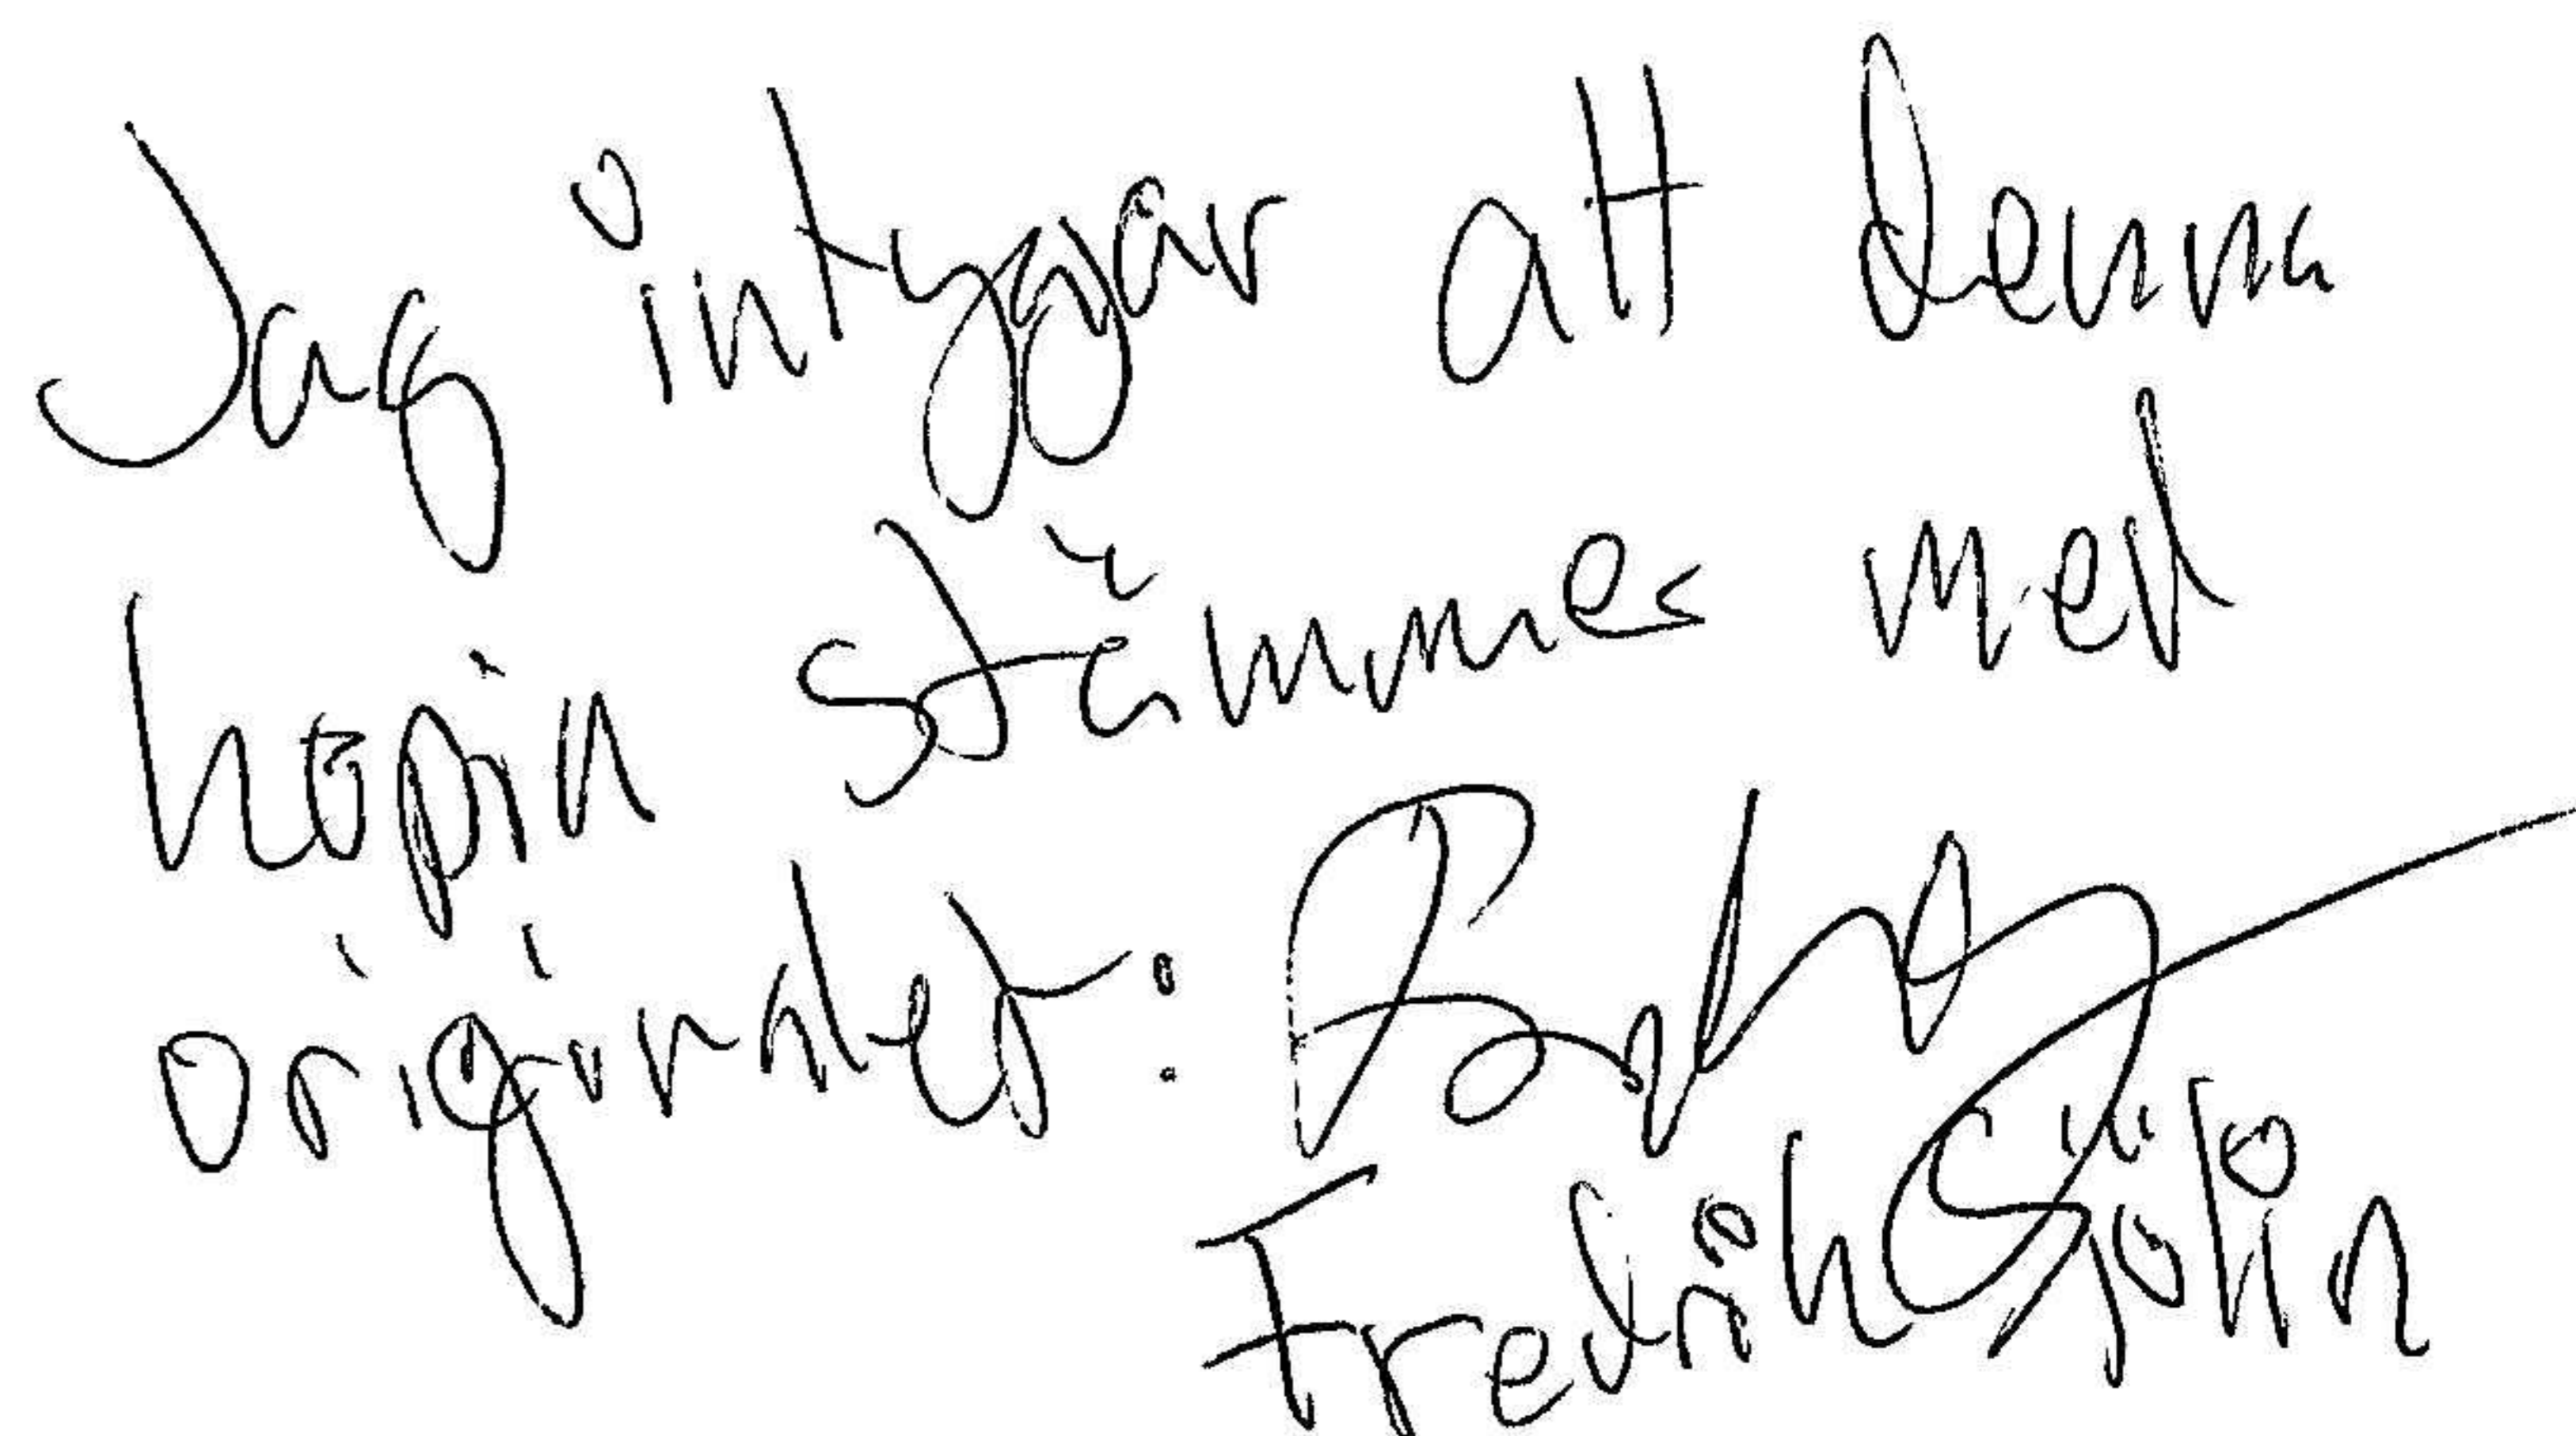 Jag intygar att denna
kopia stämmer med
originalet:
Fredrik Sjölin